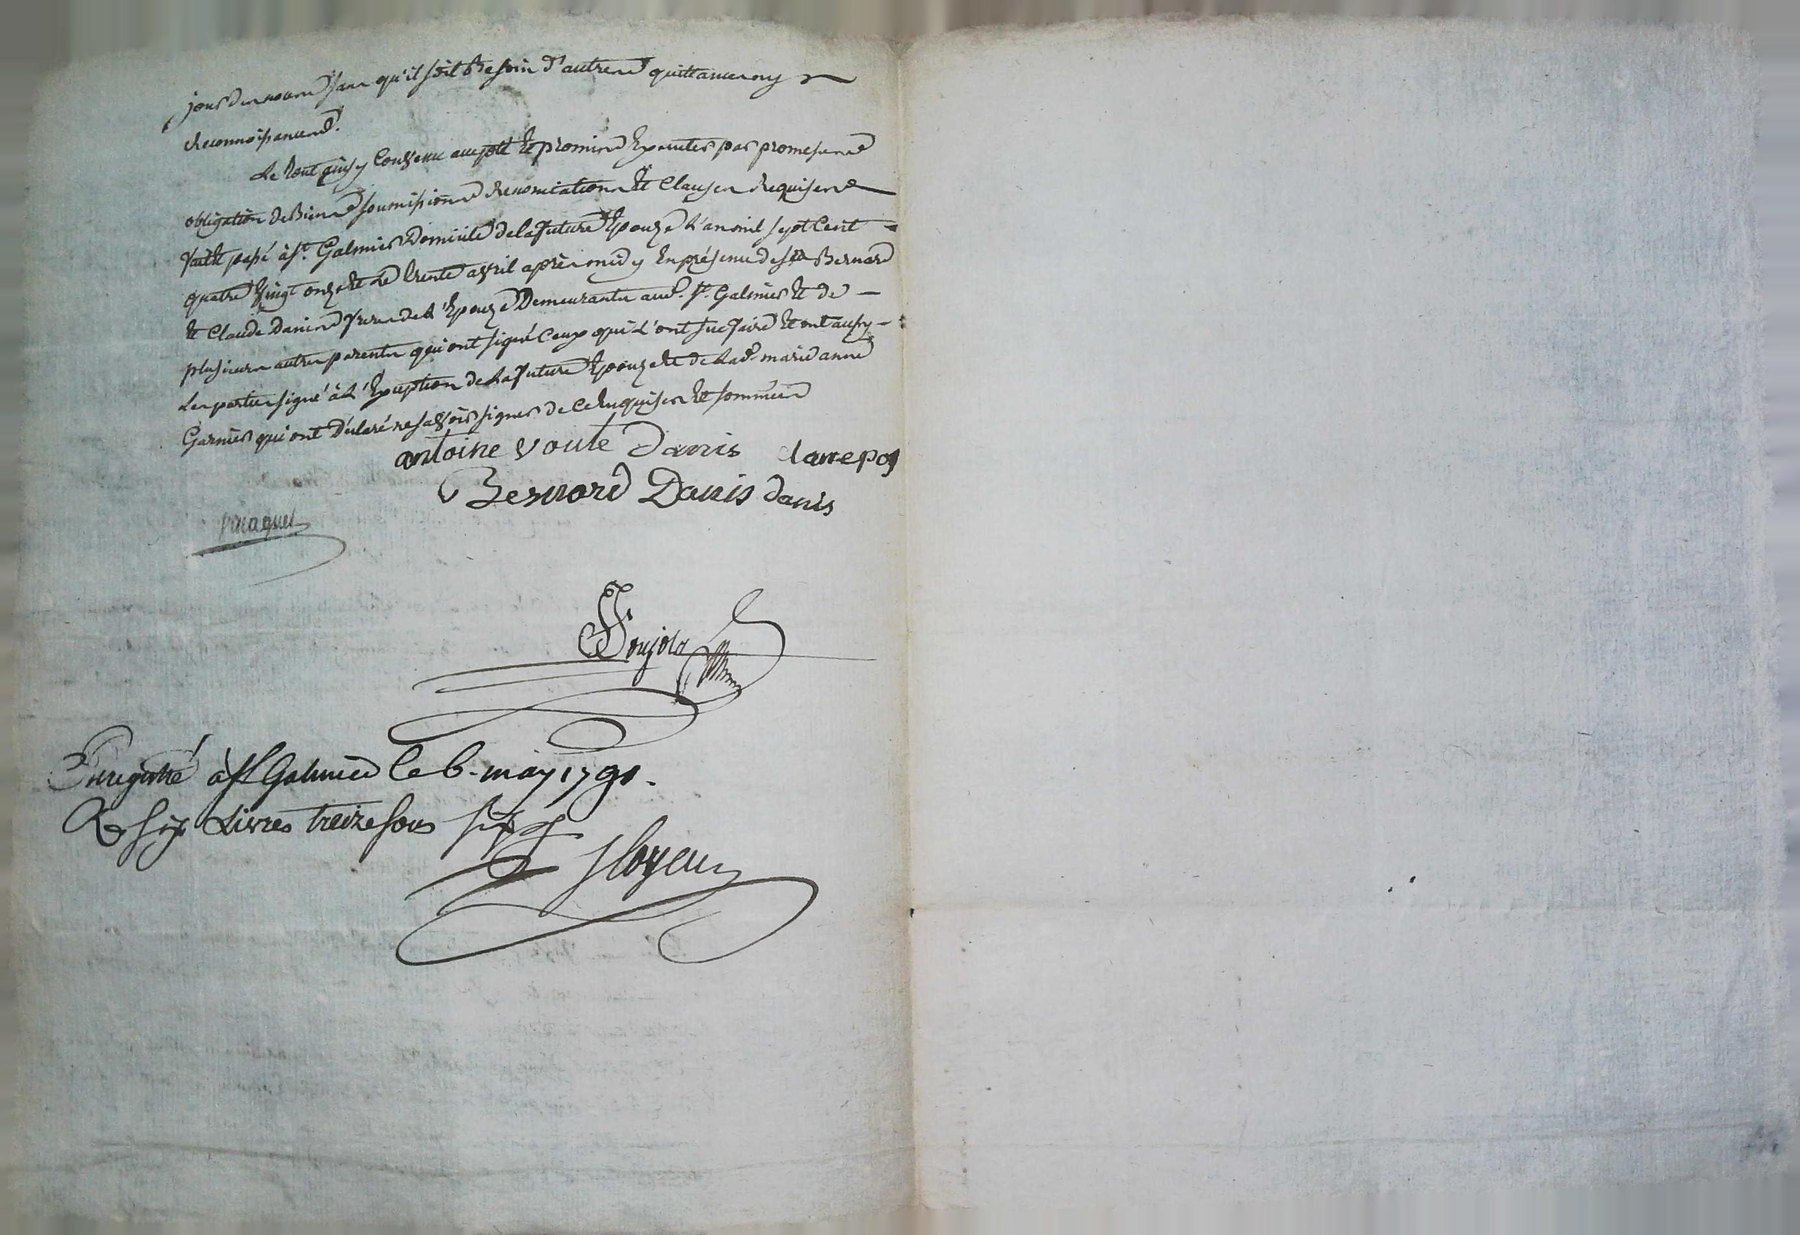 jours de noce sans qu'il soit Besoin d'autre quittance ny
Reconnoissance.
Le tout ainsy Convenu accepté Et promis Executer par promesse
obligation de Biens soumissions Renonciations Et Clauses Requises
fait & passé à St. Galmier Domicile de la future Epouze L'an mil sept Cent
quatre vingt onze Et Le trente avril après midy En présence de Bernard
Et Claude Danis frere de L'Epouze Demeurants aud. St. Galmier Et de
plusieurs autres parents qui ont signé Ceux qui L'ont sçu faire Et ont aussy
Les parties signé à L'Exception de La future Epouze Et de Lad. marie anne
Garnier qui ont Déclaré ne savoir signer de Ce Requises Et sommées
antoine voute Danis
Bernard Danis danis
Enregistré à St Galmier le 6. may 1791.
R six Livres treize sous six